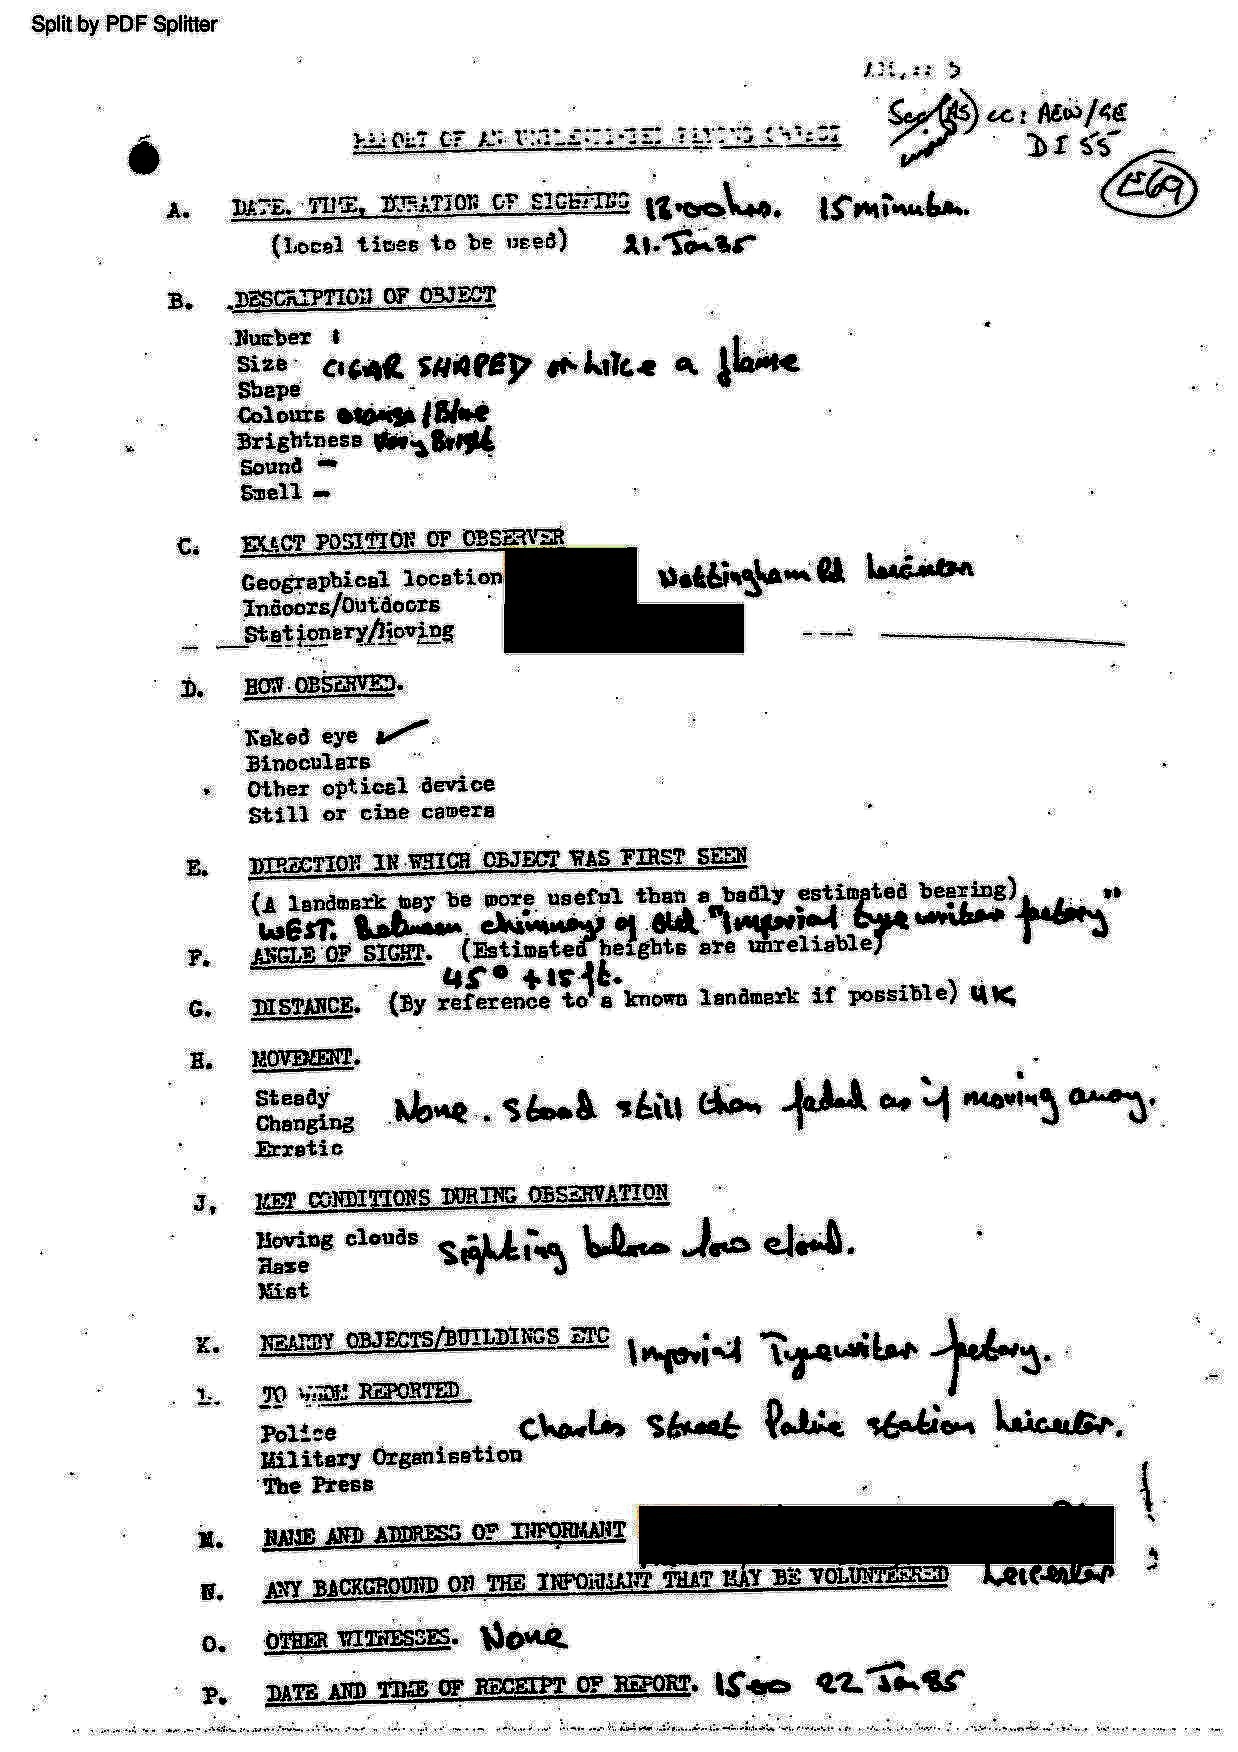 Split by PDF Splitter
Sec (AS) cc: AEW/GE
DI 55
E69
REPORT OF AN UNIDENTIFIED FLYING OBJECT
A. DATE. TIME, DURATION OF SIGHTING 18.00hrs. 15 minutes.
(Local times to be used) 21. Jan 85
B. DESCRIPTION OF OBJECT
Number 1
Size CIGAR SHAPED or like a flame
Shape
Colours orange/Blue
Brightness Very Bright
Sound -
Smell -
C. EXACT POSITION OF OBSERVER
Geographical location Nottingham Rd Leicester
Indoors/Outdoors
Stationary/Moving
D. HOW OBSERVED.
Naked eye ✓
Binoculars
Other optical device
Still or cine camera
E. DIRECTION IN WHICH OBJECT WAS FIRST SEEN
(A landmark may be more useful than a badly estimated bearing)
WEST. Between chimneys of old "Imperial typewriter factory"
F. ANGLE OF SIGHT. (Estimated heights are unreliable)
45° + 15 ft.
G. DISTANCE. (By reference to a known landmark if possible) UK
H. MOVEMENT.
Steady
Changing None. Stood still then faded as if moving away.
Erratic
J. MET CONDITIONS DURING OBSERVATION
Moving clouds Sighting below low cloud.
Haze
Mist
K. NEARBY OBJECTS/BUILDINGS ETC Imperial Typewriter factory.
L. TO WHOM REPORTED
Police Charles Street Police station Leicester.
Military Organisation
The Press
M. NAME AND ADDRESS OF INFORMANT
N. ANY BACKGROUND ON THE INFORMANT THAT MAY BE VOLUNTEERED Leicester
O. OTHER WITNESSES. None
P. DATE AND TIME OF RECEIPT OF REPORT. 1500 22 Jan 85